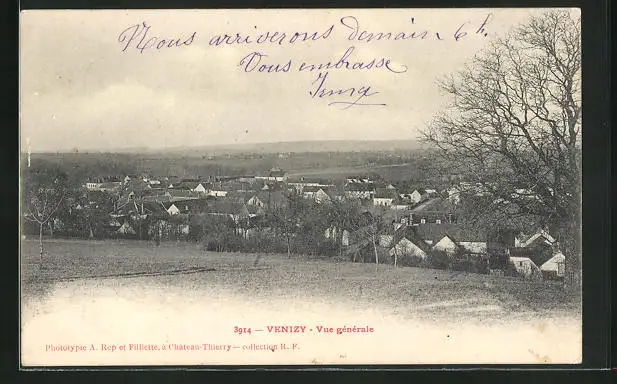 Nous arriverons demain. 6 h
Vous embrasse
3914 — VENIZY - Vue générale
Phototypie A. Rep et Filliette, à Château-Thierry — collection R. F.